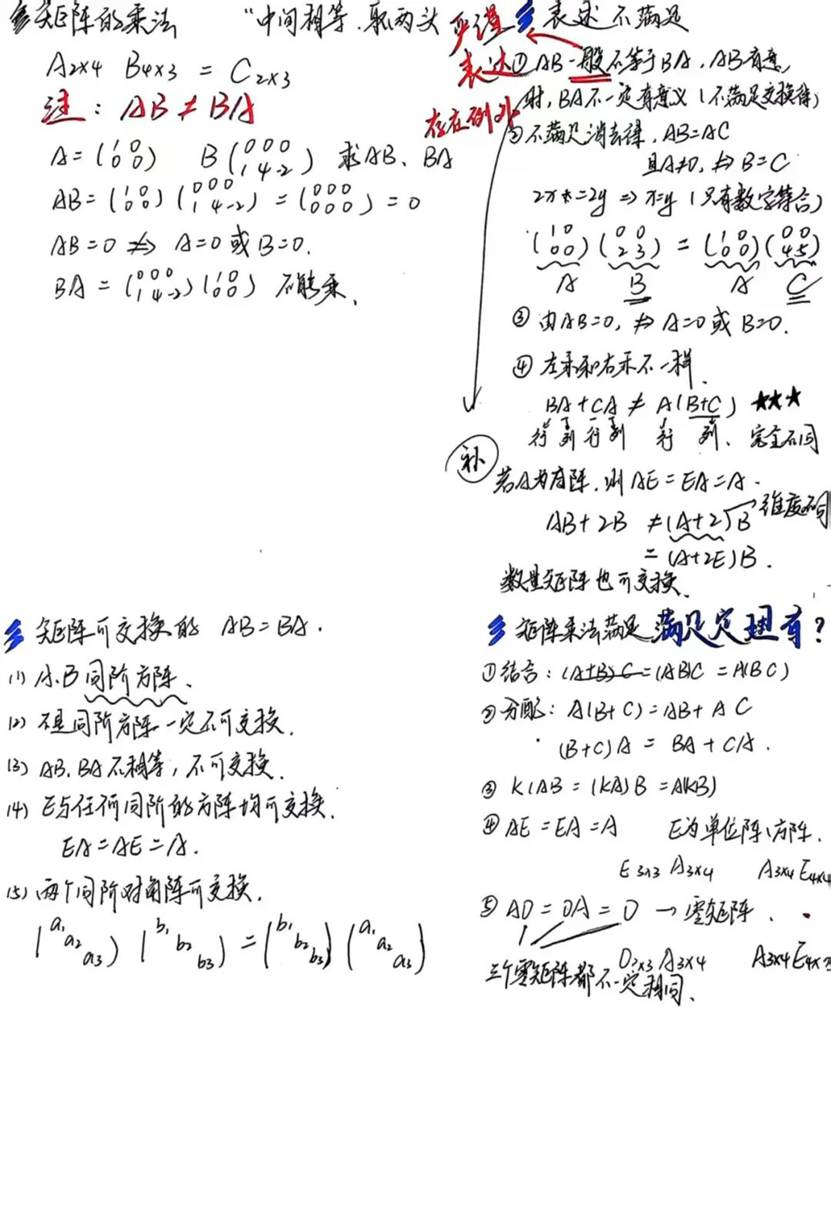 矩阵的乘法 "中间相等.取两头
A₂ₓ₄ B₄ₓ₃ = C₂ₓ₃
注: AB ≠ BA
A = (1 0 / 0 0) B (0 0 0 / 1 4 -2) 求AB、BA
AB = (1 0 / 0 0) (0 0 0 / 1 4 -2) = (0 0 0 / 0 0 0) = 0
AB = 0 ⇏ A=0 或 B=0.
BA = (0 0 0 / 1 4 -2) (1 0 / 0 0) 不能乘.
表述不满足
严谨
表达
存在例外
① AB一般不等于BA, AB有意义
时, BA不一定有意义 (不满足交换律)
② 不满足消去律, AB=AC
且A≠0, ⇏ B=C
2x=2y ⇒ x=y (只有数字符合)
(1 0 / 0 0) (0 0 / 2 3) = (1 0 / 0 0) (0 0 / 4 5)
A B A C
③ 由AB=0, ⇏ A=0 或 B=0.
④ 左乘和右乘不一样.
BA+CA ≠ A(B+C) ★★★
行 列 行 列 行 列、完全不同
补
若A为方阵, 则AE=EA=A.
AB+2B ≠ (A+2)B 维度不同
= (A+2E)B.
数量矩阵也可交换.
矩阵可交换的 AB=BA.
(1) A.B同阶方阵、
(2) 不是同阶方阵一定不可交换.
(3) AB、BA不相等, 不可交换.
(4) E与任何同阶的方阵均可交换.
EA=AE=A.
(5) 两个同阶对角阵可交换.
(a₁ a₂ a₃) (b₁ b₂ b₃) = (b₁ b₂ b₃) (a₁ a₂ a₃)
矩阵乘法满足 满足定理有?
① 结合: (A+B)C=(AB)C = A(BC)
② 分配: A(B+C)=AB+AC
(B+C)A = BA+CA.
③ K(AB = (KA)B = A(KB)
④ AE=EA=A E为单位阵、方阵.
E₃ₓ₃ A₃ₓ₄ A₃ₓ₄ E₄ₓ₄
⑤ AO=OA=O → 零矩阵.
O₂ₓ₃ A₃ₓ₄ A₃ₓ₄ E₄ₓ₂
三个零矩阵都不一定相同.